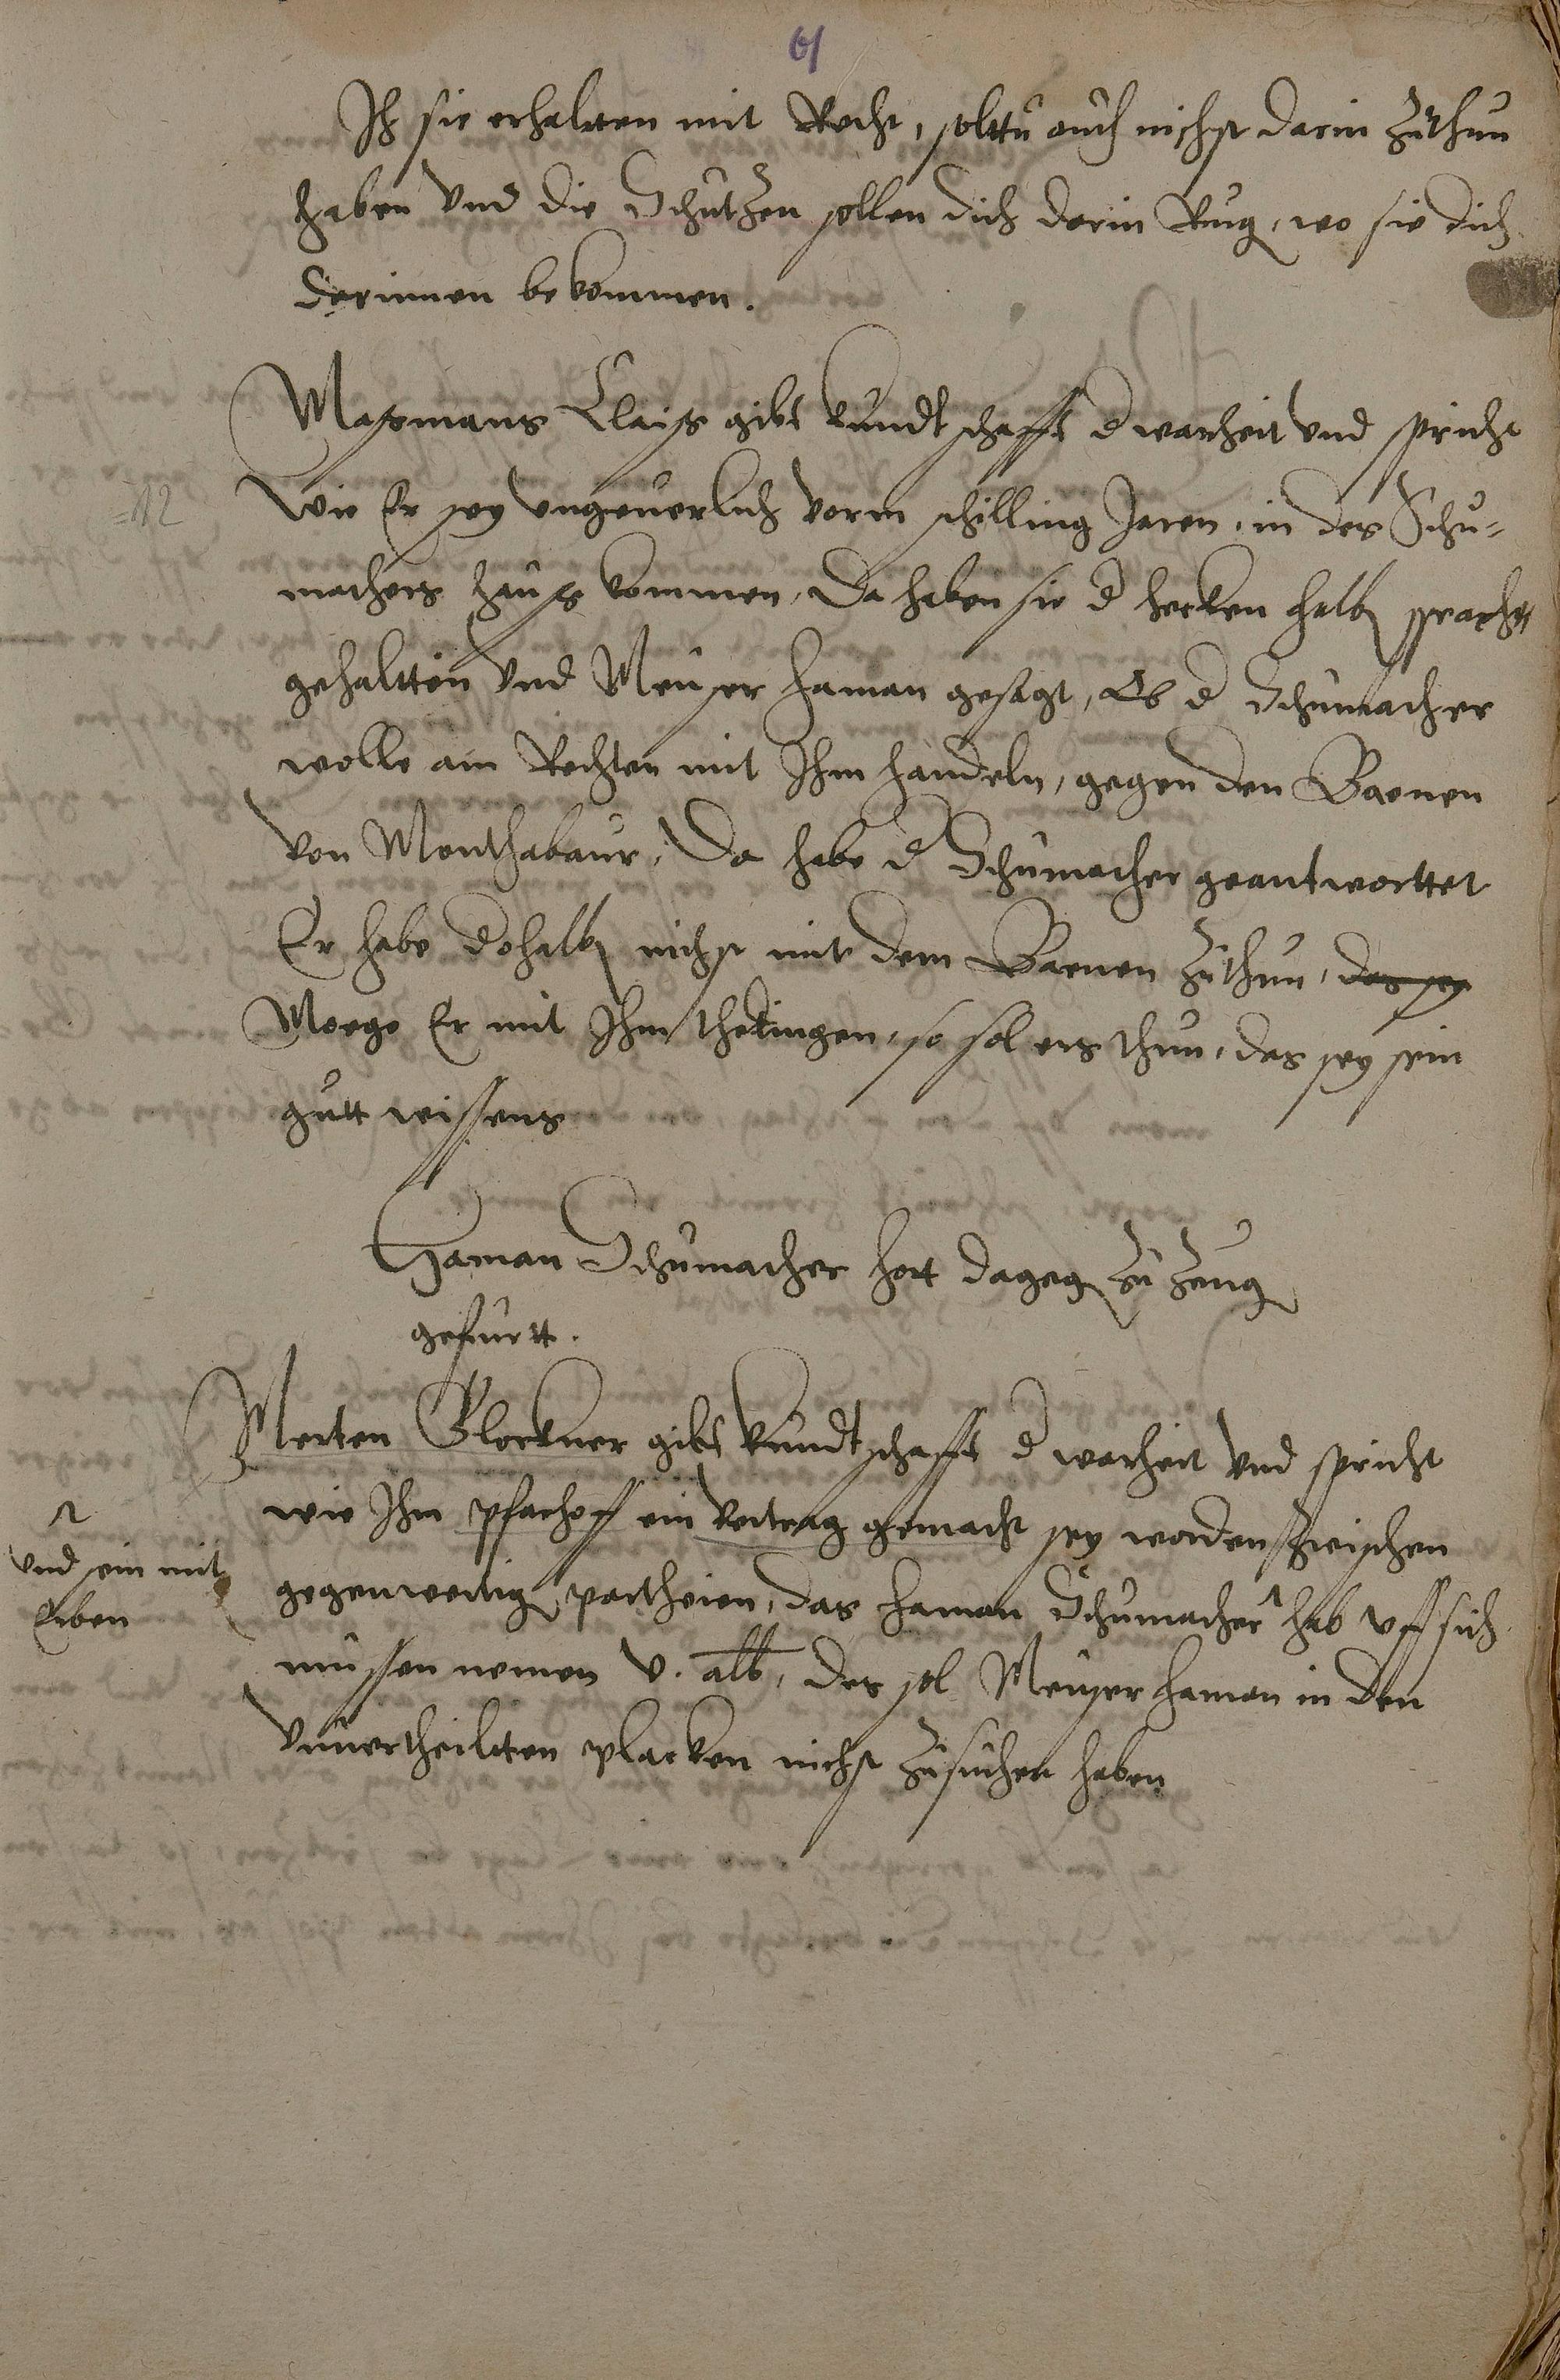 61
Ich sie erhaltten mit Recht, solttu auch nichst darin zuthun
haben vnd die Schutzen sollen dich darin Rug, wo sie dich
darinnen bekommen.
Masmans Clais gibt kundtschafft d warheit vnd spricht
=12
wie Er sey vngeuerlich vorm schilling Jaren, in des Schu=
machers haus kommen, Da haben sie d hecken halb sprach
gehaltten vnd Meuser haman gesagt, Ob d Schumacher
wolle am Rechten mit Ihm handeln, gegen den Baenen
von Monthabaur, Da habe d Schumacher geantworttet
Er habe dohalb nichst mit dem Baenen zuthun, das sey
Moege Er mit Ihm thedingen, so sol ers thun, das sey sein
gutt wissens
Haman Schumacher hort dageg zu zeug
gefurtt.
Merten Glockner gibt kundtschafft d warheit vnd spricht
wie Ihm pfarhoff ein vertrag gemacht sey worden zwischen
gegenwertig partheien, das haman Schumacher hab vff sich
vnd sein mit
Erben
mussen nemen v. alb, des sol Meuser haman in den
vnuertheiltten placken nichst zusuchen haben